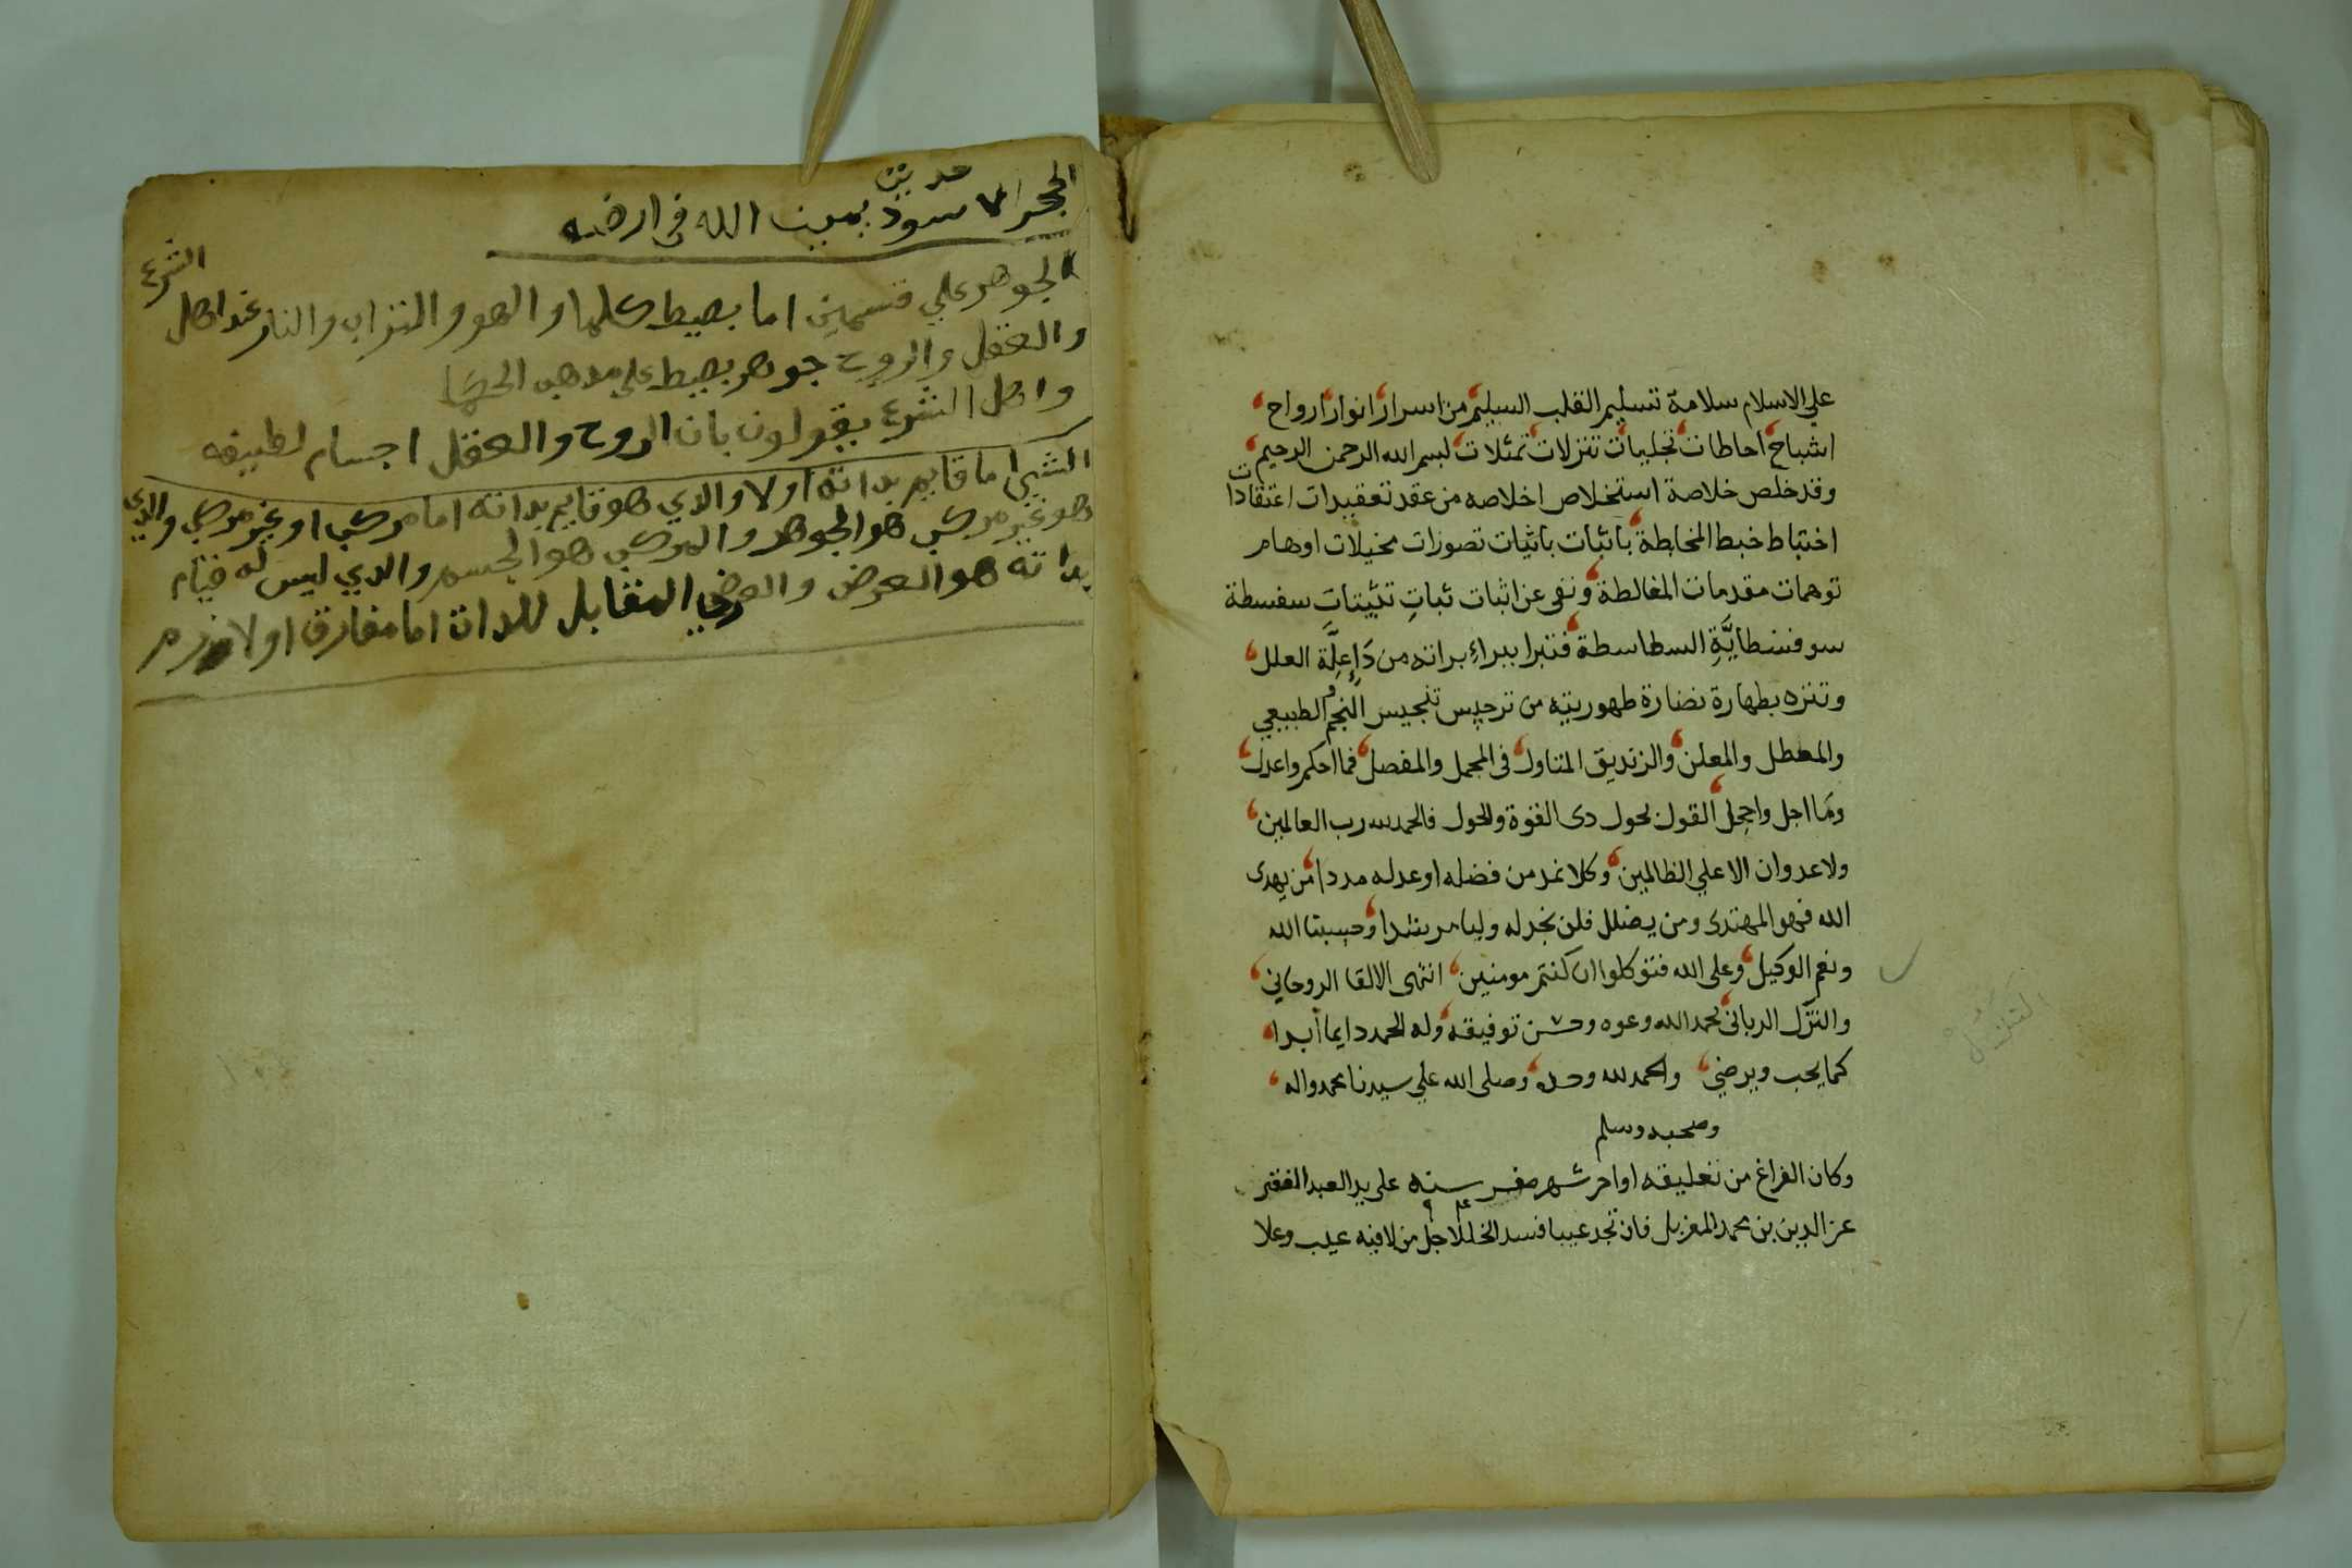 علي الاسلام سلامة تسليم القلب السليم من اسرار انوار ارواح
اشباح احاطات تجليات تنزلات تمثلات لبسم الله الرحمن الرحيم
وقد خلص خلاصة استخلاص اخلاصه من عقد تعقيدات اعتقادات
اختباط خبط المخابطة باثبات تصورات مخيلات اوهام
توهمات مقدمات المغالطة ونفى عن اثبات ثبات تثبيتات سفسطة
سوفسطايَّةِ السطاسطة فتبرا ببراءِ براته من العلل
وتنزه بطهارة نضارة طهوريته من ترجيس تنجيس الطبيعي
والمعطل والمعلن والزنديق المتاول فى المجمل والمفصل فما احكم واعدل
وما اجل واجمل القول بحول دى القوة والحول فالحمد لله رب العالمين
ولا عدوان الا علي الظالمين وكلا نمد من فضله او عدله مددا من يهدى
الله فهو المهتدى ومن يضلل فلن تجد له وليا مرشدا وحسبنا الله
ونعم الوكيل وعلى الله فتوكلوا ان كنتم مومنين انتهى الالقا الروحاني
والتنزل الربانى بحمد الله وعونه وحسن توفيقه وله الحمد دايما ابدا
كما يحب ويرضي والحمد لله وحده وصلى الله علي سيدنا محمد واله
وصحبه وسلم
وكان الفراغ من تعليقه اواخر شهر صفر سنه على يد العبد الفقير
عز الدين بن محمد فان تجد عيبا فسد الخللا جل من لا فيه عيب وعلا
التنزل
حديث
الحجر الاسود يمين الله فى ارضه
الجوهر علي قسمين اما بصيط كلما والهو والتراب والنار عند اهل الشرع
والعقل والروح جوهر بصيط علي مدهب الحكما
واهل الشرع يقولون بان الروح والعقل اجسام لطيفه
الشي اما قايم بداته اولا والدي هو قايم بداته اما مركب او غير مركب والدي
هو غير مركب هو الجوهر والمركب هو الجسم والدي ليس له قيام
بداته هو العرض والعرضي المقابل للدات اما مفارق او لازم